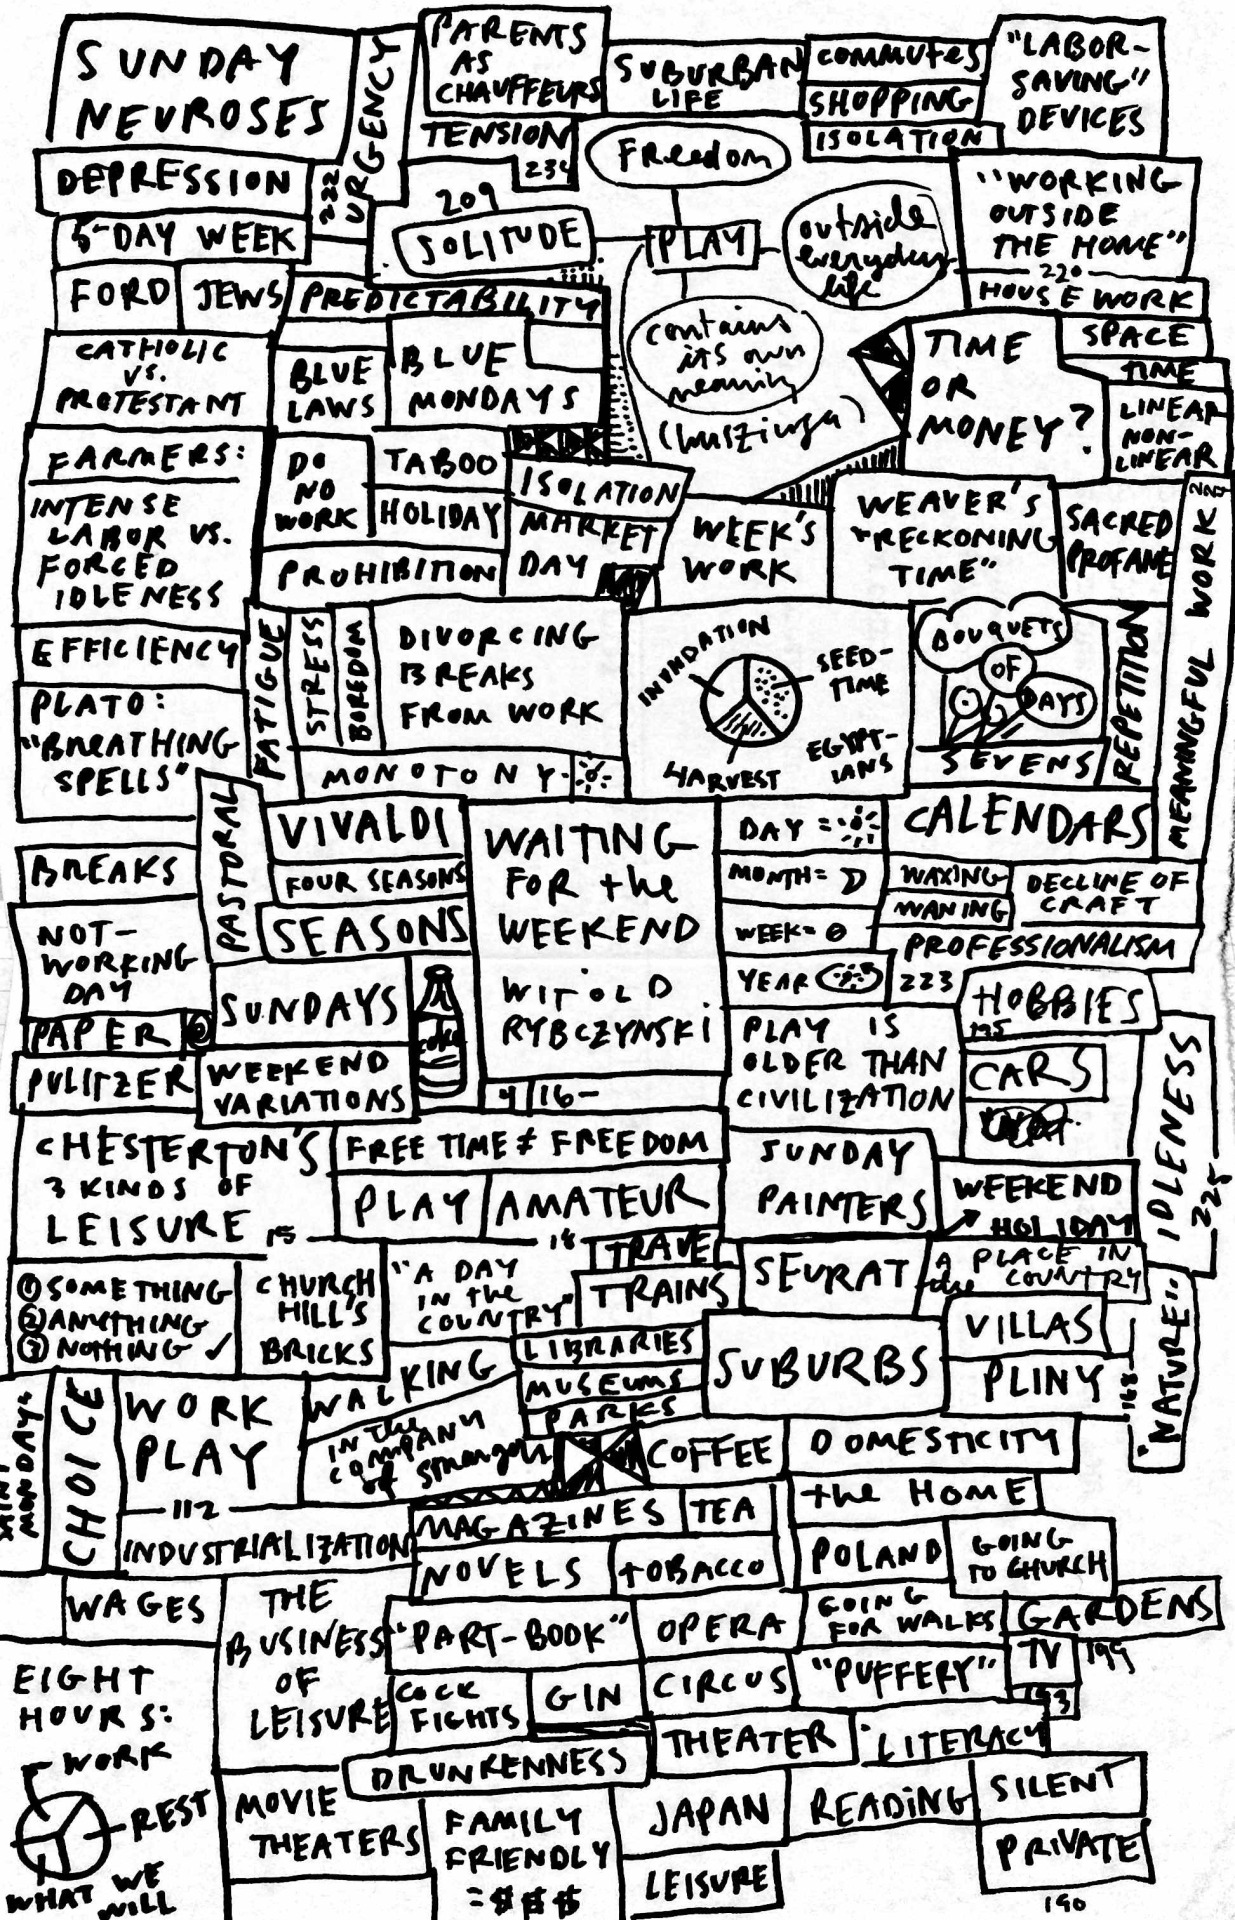 SUNDAY
NEUROSES
URGENCY
222
PARENTS
AS
CHAUFFEURS
TENSION
234
SUBURBAN
LIFE
COMMUTES
SHOPPING
ISOLATION
"LABOR-
SAVING"
DEVICES
DEPRESSION
5-DAY WEEK
FORD
JEWS
209
SOLITUDE
Freedom
PLAY
outside
everyday
life
contains
its own
meaning
"WORKING
OUTSIDE
THE HOME"
220
HOUSEWORK
PREDICTABILITY
CATHOLIC
VS.
PROTESTANT
BLUE
LAWS
BLUE
MONDAYS
TIME
OR
MONEY?
SPACE
TIME
LINEAR
NON-
LINEAR
FARMERS:
INTENSE
LABOR VS.
FORCED
IDLENESS
DO
NO
WORK
TABOO
HOLIDAY
PROHIBITION
ISOLATION
MARKET
DAY
WEEK'S
WORK
WEAVER'S
"RECKONING
TIME"
SACRED
PROFANE
MEANINGFUL WORK
EFFICIENCY
FATIGUE
STRESS
BOREDOM
DIVORCING
BREAKS
FROM WORK
INUNDATION
SEED-
TIME
HARVEST
EGYPT-
IANS
BOUQUETS
OF
DAYS
REPETITION
SEVENS
PLATO:
"BREATHING
SPELLS"
MONOTONY
PASTORAL
VIVALDI
FOUR SEASONS
SEASONS
WAITING
FOR the
WEEKEND
WITOLD
RYBCZYNSKI
4/16-
DAY =
MONTH=
WEEK=
YEAR
CALENDARS
WAXING
WANING
DECLINE OF
CRAFT
PROFESSIONALISM
223
BREAKS
NOT-
WORKING
DAY
PAPER
PULITZER
SUNDAYS
WEEKEND
VARIATIONS
coke
PLAY IS
OLDER THAN
CIVILIZATION
HOBBIES
195
CARS
IDLENESS
225
CHESTERTON'S
3 KINDS OF
LEISURE
15
FREE TIME ≠ FREEDOM
PLAY
AMATEUR
18
SUNDAY
PAINTERS
WEEKEND
HOLIDAY
① SOMETHING
② ANYTHING
③ NOTHING ✓
CHURCH
HILL'S
BRICKS
"A DAY
IN the
COUNTRY"
TRAVEL
TRAINS
SEURAT
A PLACE IN
the COUNTRY
VILLAS
PLINY
168
"NATURE"
LIBRARIES
MUSEUMS
PARKS
SUBURBS
SAINT
MONDAYS
CHOICE
WORK
PLAY
112
WALKING
IN the
COMPANY
of strangers
COFFEE
DOMESTICITY
the HOME
INDUSTRIALIZATION
MAGAZINES
TEA
NOVELS
TOBACCO
POLAND
GOING
TO CHURCH
WAGES
THE
BUSINESS
OF
LEISURE
"PART-BOOK"
OPERA
GOING
FOR WALKS
GARDENS
COCK
FIGHTS
GIN
CIRCUS
"PUFFERY"
TV
199
193
EIGHT
HOURS:
WORK
REST
WHAT WE
WILL
DRUNKENNESS
THEATER
LITERACY
MOVIE
THEATERS
FAMILY
FRIENDLY
= $ $ $
JAPAN
LEISURE
READING
SILENT
PRIVATE
190